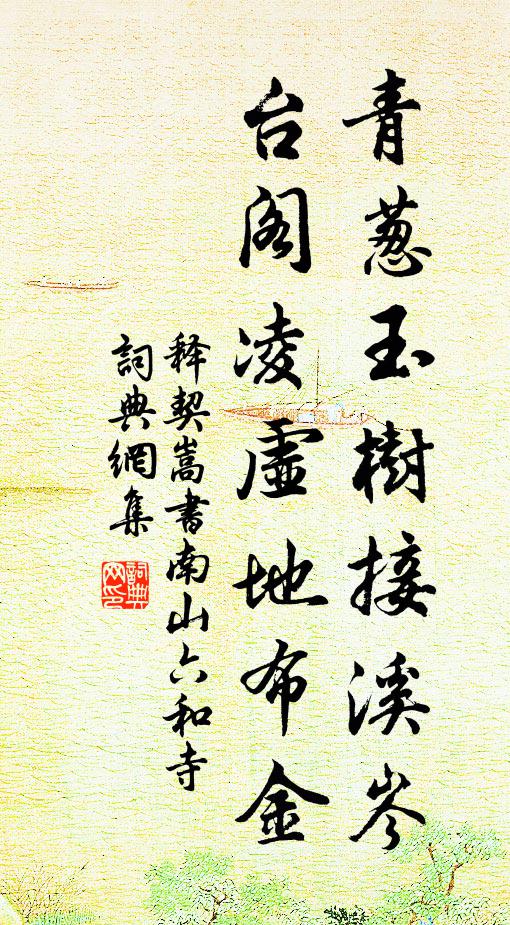 青葱玉樹接溪岑
台阁凌虛地布金
释契嵩書南山六和寺
詞典網集
詞典网印